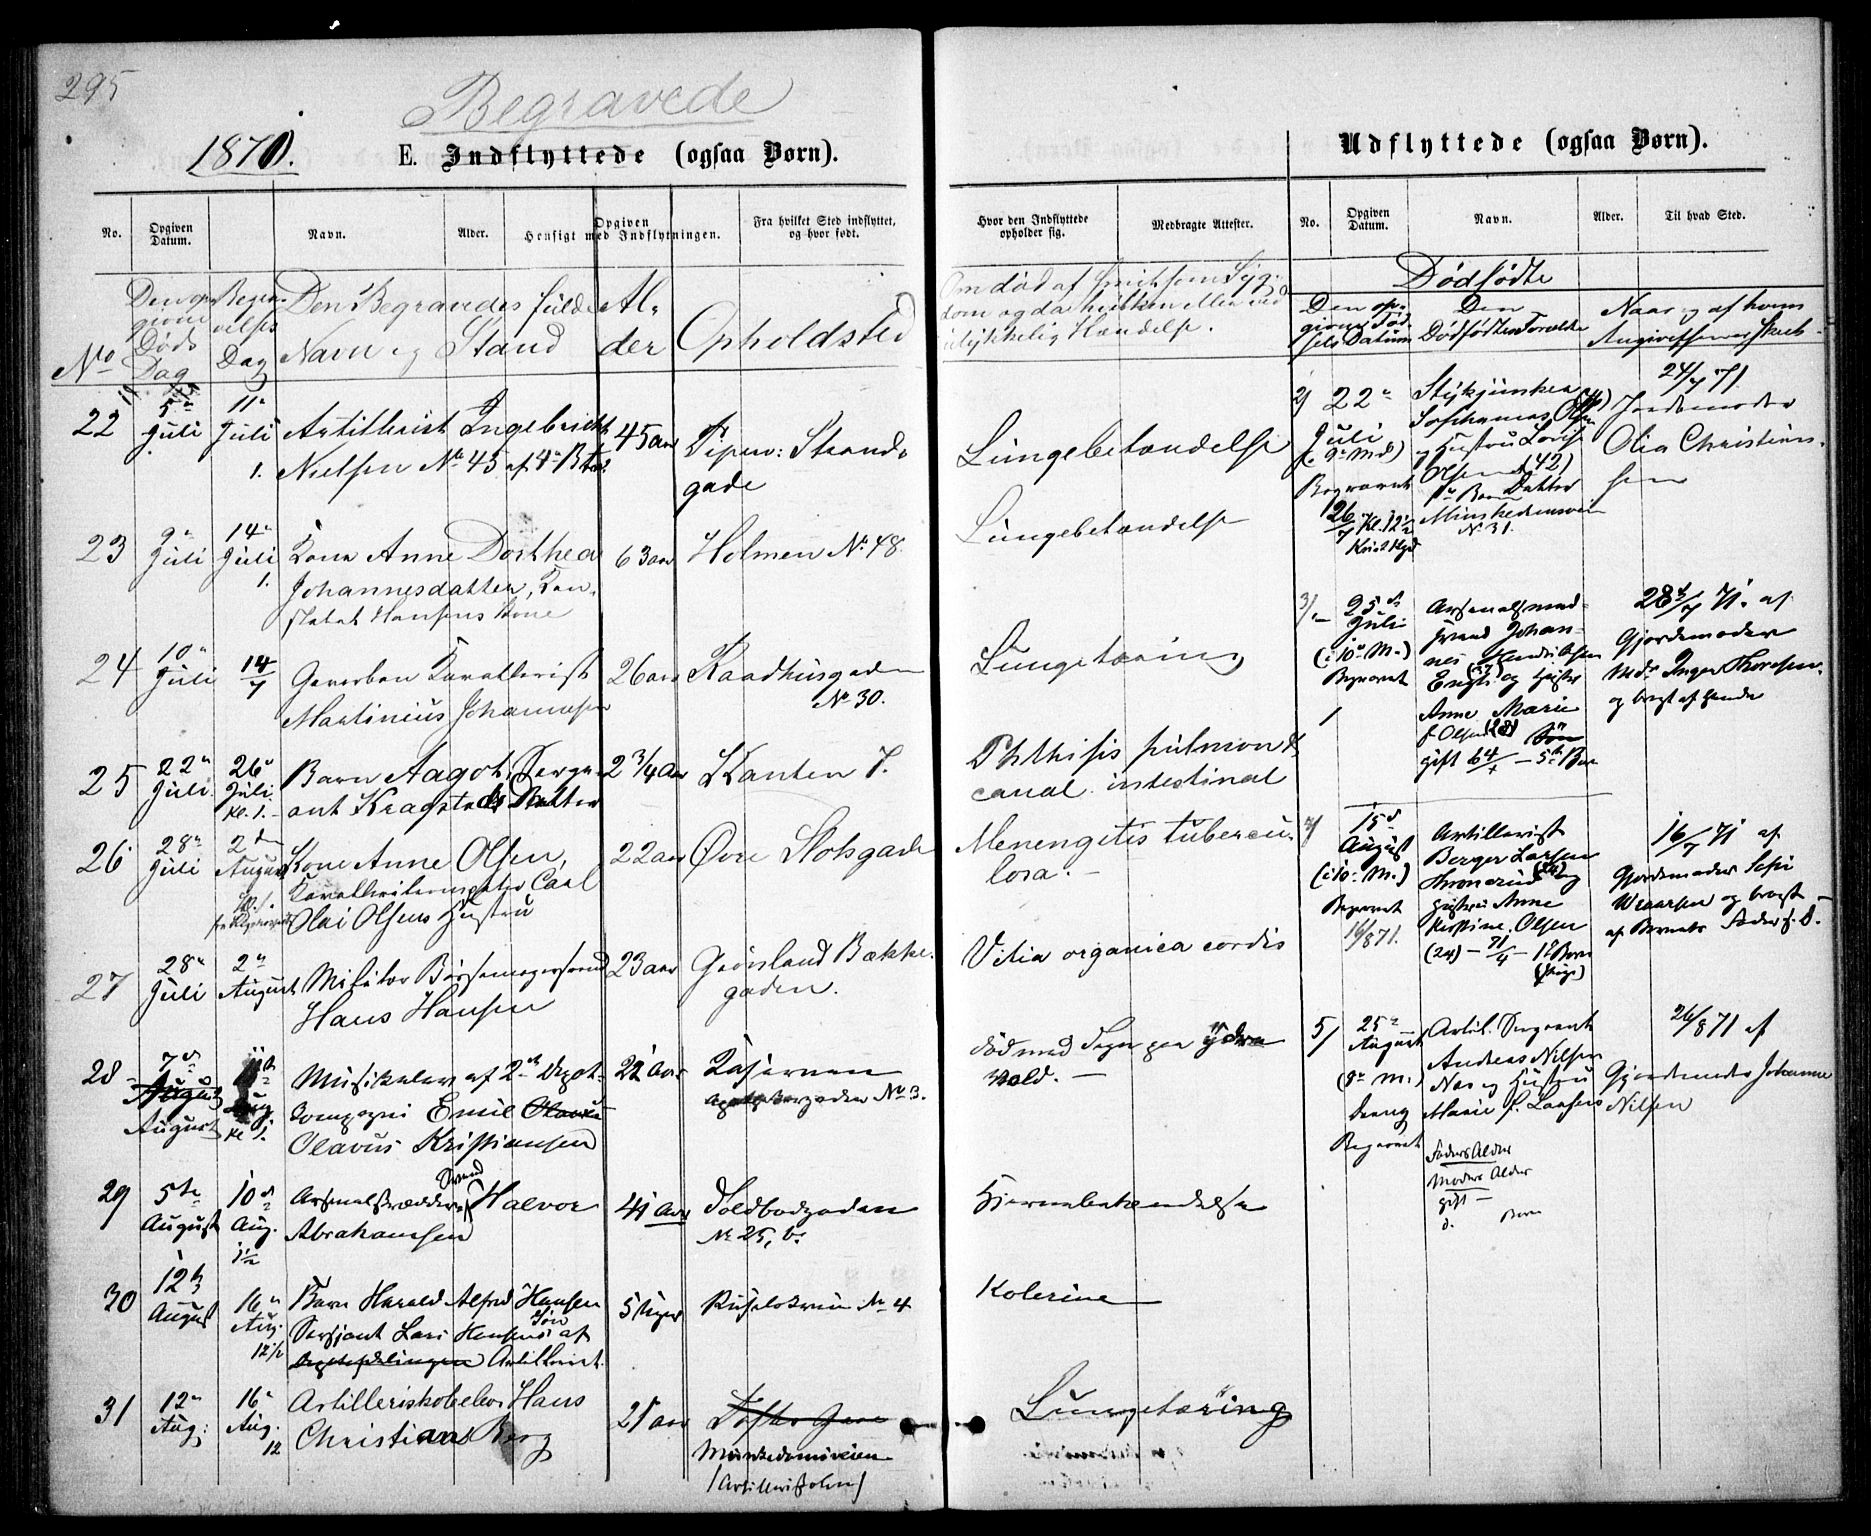 295
Begravede
1870.
E. Indflyttede (ogsaa Børn).
No.
Opgiven Datum.
Navn.
Alder.
Opgiven Hensigt med Indflytningen.
Fra hvilket Sted indflyttet, og hvor født.
Den opgivne Døds Dag
Begravelses Dag
No
Den Begravedes fulde Navn og Stand
Alder
Opholdsted
22
5te Juli
11te Juli
1.
Artillerist Ingebricht
Nielsen No 45 af 4de Bat.
45 aar
Piperv: Strand-
gade
23
9de Juli
14de Juli
1.
Kone Anne Dorthea
Johannesdatter, Kon-
stabel Hansens Kone
63 aar
Holmen No 48
24
10de Juli
14/7
Gevorben Kavallerist
Martinius Johannesen
26 aar
Raadhusgaden
No 30.
25
22de Juli
26de Juli
kl. 1.
Barn Aagot, Serge-
ant Kragstads Datter
2 3/4 Aar
Kanten 7.
26
28de Juli
2den August
Kone Anne Olsen,
Carl
Olai Olsens Hustru
22 aar
Øvre Slotsgade
27
28de Juli
2den August
Militær Bøssemagersvend
Hans Hansen
23 aar
Grønland Bække-
gaden.
28
7de August
August
11te Aug
kl 1.
Musikelev af 2det Depot-
kompagni Emil
Olavus Kristiansen
22 Aar
Kasernen
No 3.
29
5te August
10de Aug.
1 1/2
Svend
Halvor
Abrahamsen
41 Aar
Toldbodgaden
No 25, b.
30
12te August
16de Aug
12 1/2
Barn Harald Alfred Hansen
Sersjant Lars Hansens Søn af
Artilleriet.
5 Uger
Ruseløkveien No 4
31
12te Aug:
16de Aug.
12
Artilleriskoleelev Hans
Christian Berg
21 aar
Munkedamsveien
Udflyttede (ogsaa Børn).
Hvor den Indflyttede opholder sig.
Medbragte Attester.
No.
Opgiven Datum.
Navn.
Alder.
Til hvad Sted.
Om død af Smitsom Syg-
dom og da hvilken eller ved
ulykkelig Hændelse.
Dødfødte
Den opgivne Fødsels Datum
Den Dødfødtes Forældre
Naar og af hvem Angivelsen er skeet
Lungebetændelse
Lungebetændelse
Lungetæring
Phthisis pulmon &
canal. intestinal
Menengitis tubercu-
losa. –
Vitia organica cordis
død med Tegn paa ydre
Vold. –
Hjernebetændelse
Kolerine
Lungetæring
2/
22de Juli
(i 9de Md)
Begravet
26/7 kl. 12 1/2
Olsen
og Hustru Lovise
Olsen (42)
Datter
Munkedamsvei
No 31.
24/7 71.
Jordemoder
Olia Christian-
sen
3/
25de Juli
(i 10de M.)
Begravet
Arsenalsmed-
svend Johan-
nes
Engh og Hustru
Anne Marie
f. Olsen (28)
Søn
gift 64/4 – 5te Barn
28de/7 71. af
Gjordemoder
Md. Inger Thoresen
4/
15de August
(i 10de M.)
Begravet
16/871.
Artillerist
Berger Larsen
og
Hustru Anne
Olsen
(24) – 71/4 – 1ste Barn
(Pige)
16/7 71 af
Gjordemoder
og bragt
af Barnets Fader s. D.
5/
25de August
(8de M.)
dreng
Begravet
Artil. Sergeant
Andreas Nilsen
Næs og Hustru
Marie f. Larsen
Faders Alder
Moders Alder
gift –
d. Barn
26/871 af
Gjordemoder Johanne
Nilsen